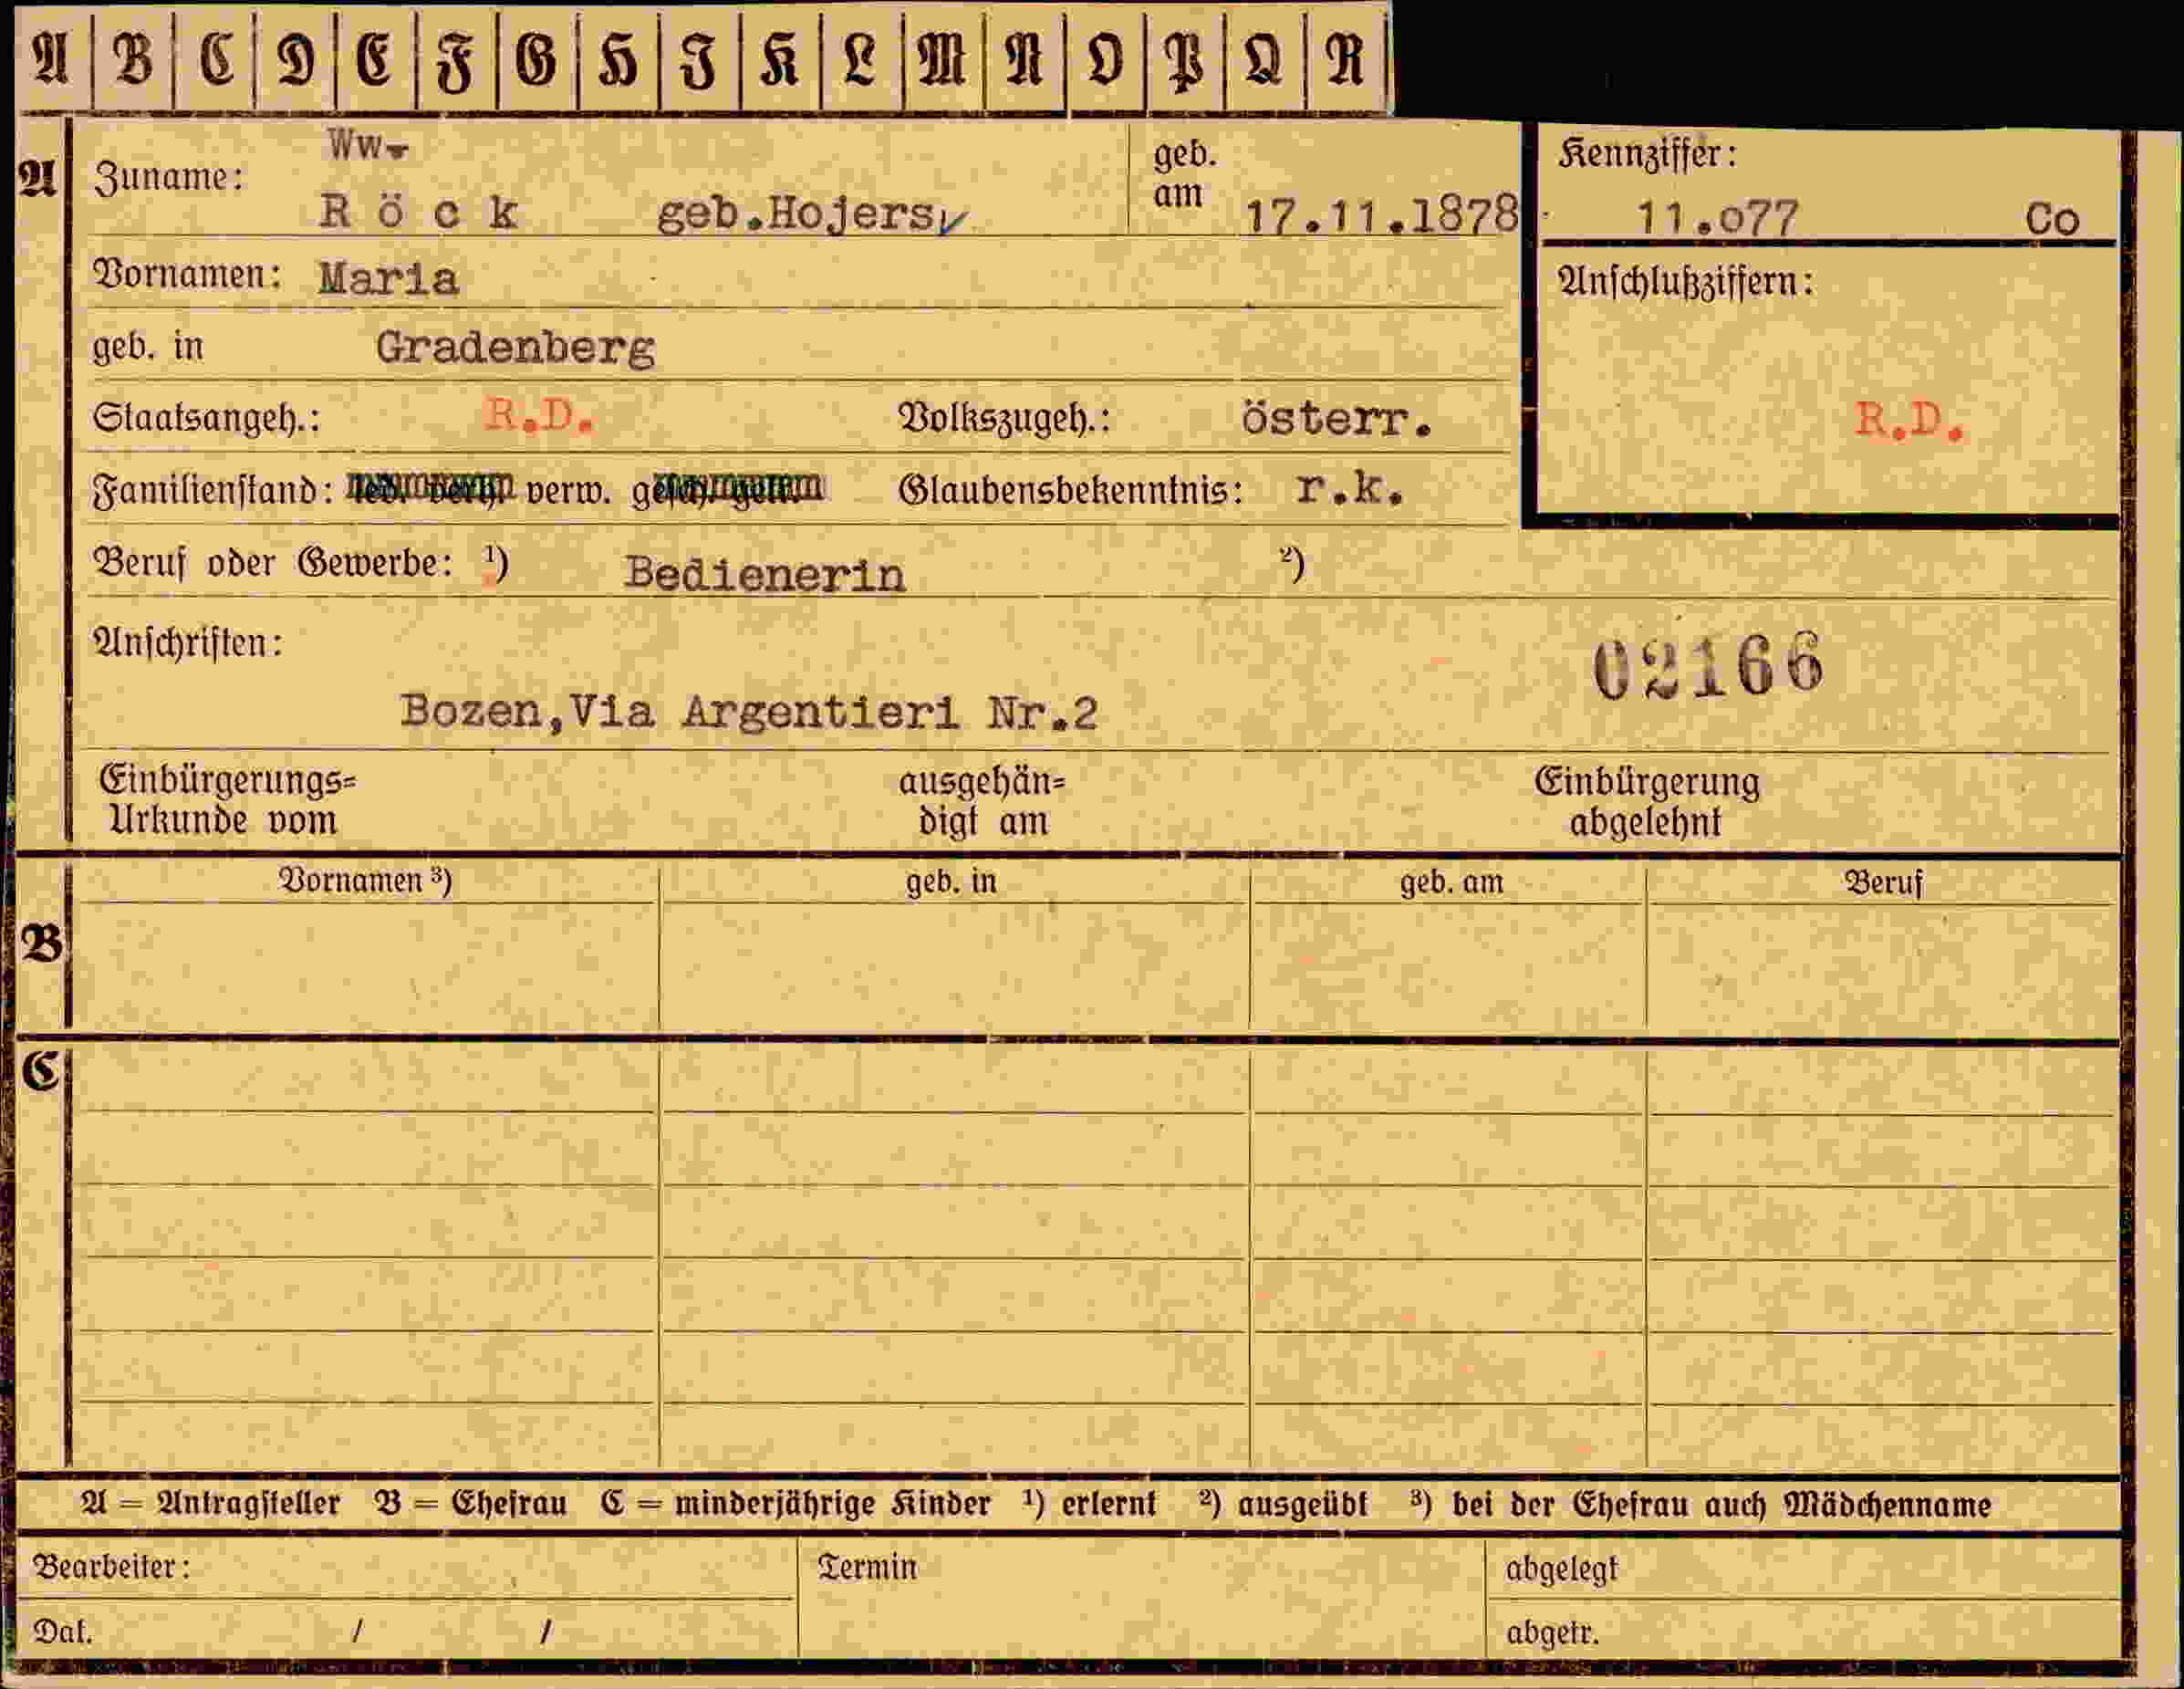 A B C D E F G H I K L M N O P Q R
A
Ww.
Zuname: Röck geb.Hojers
geb. am 17.11.1878
Kennziffer: 11.077 Co
Vornamen: Maria
Anschlußziffern:
geb. in Gradenberg
Staatsangeh.: R.D. Volkszugeh.: österr. R.D.
Familienstand: verw. Glaubensbekenntnis: r.k.
Beruf oder Gewerbe: ¹) Bedienerin ²)
Anschriften: 02166
Bozen,Via Argentieri Nr.2
Einbürgerungs= ausgehän= Einbürgerung
Urkunde vom digt am abgelehnt
B
Vornamen ³) geb. in geb. am Beruf
C
A = Antragsteller B = Ehefrau C = minderjährige Kinder ¹) erlernt ²) ausgeübt ³) bei der Ehefrau auch Mädchenname
Bearbeiter: Termin abgelegt
Dat. / / abgetr.